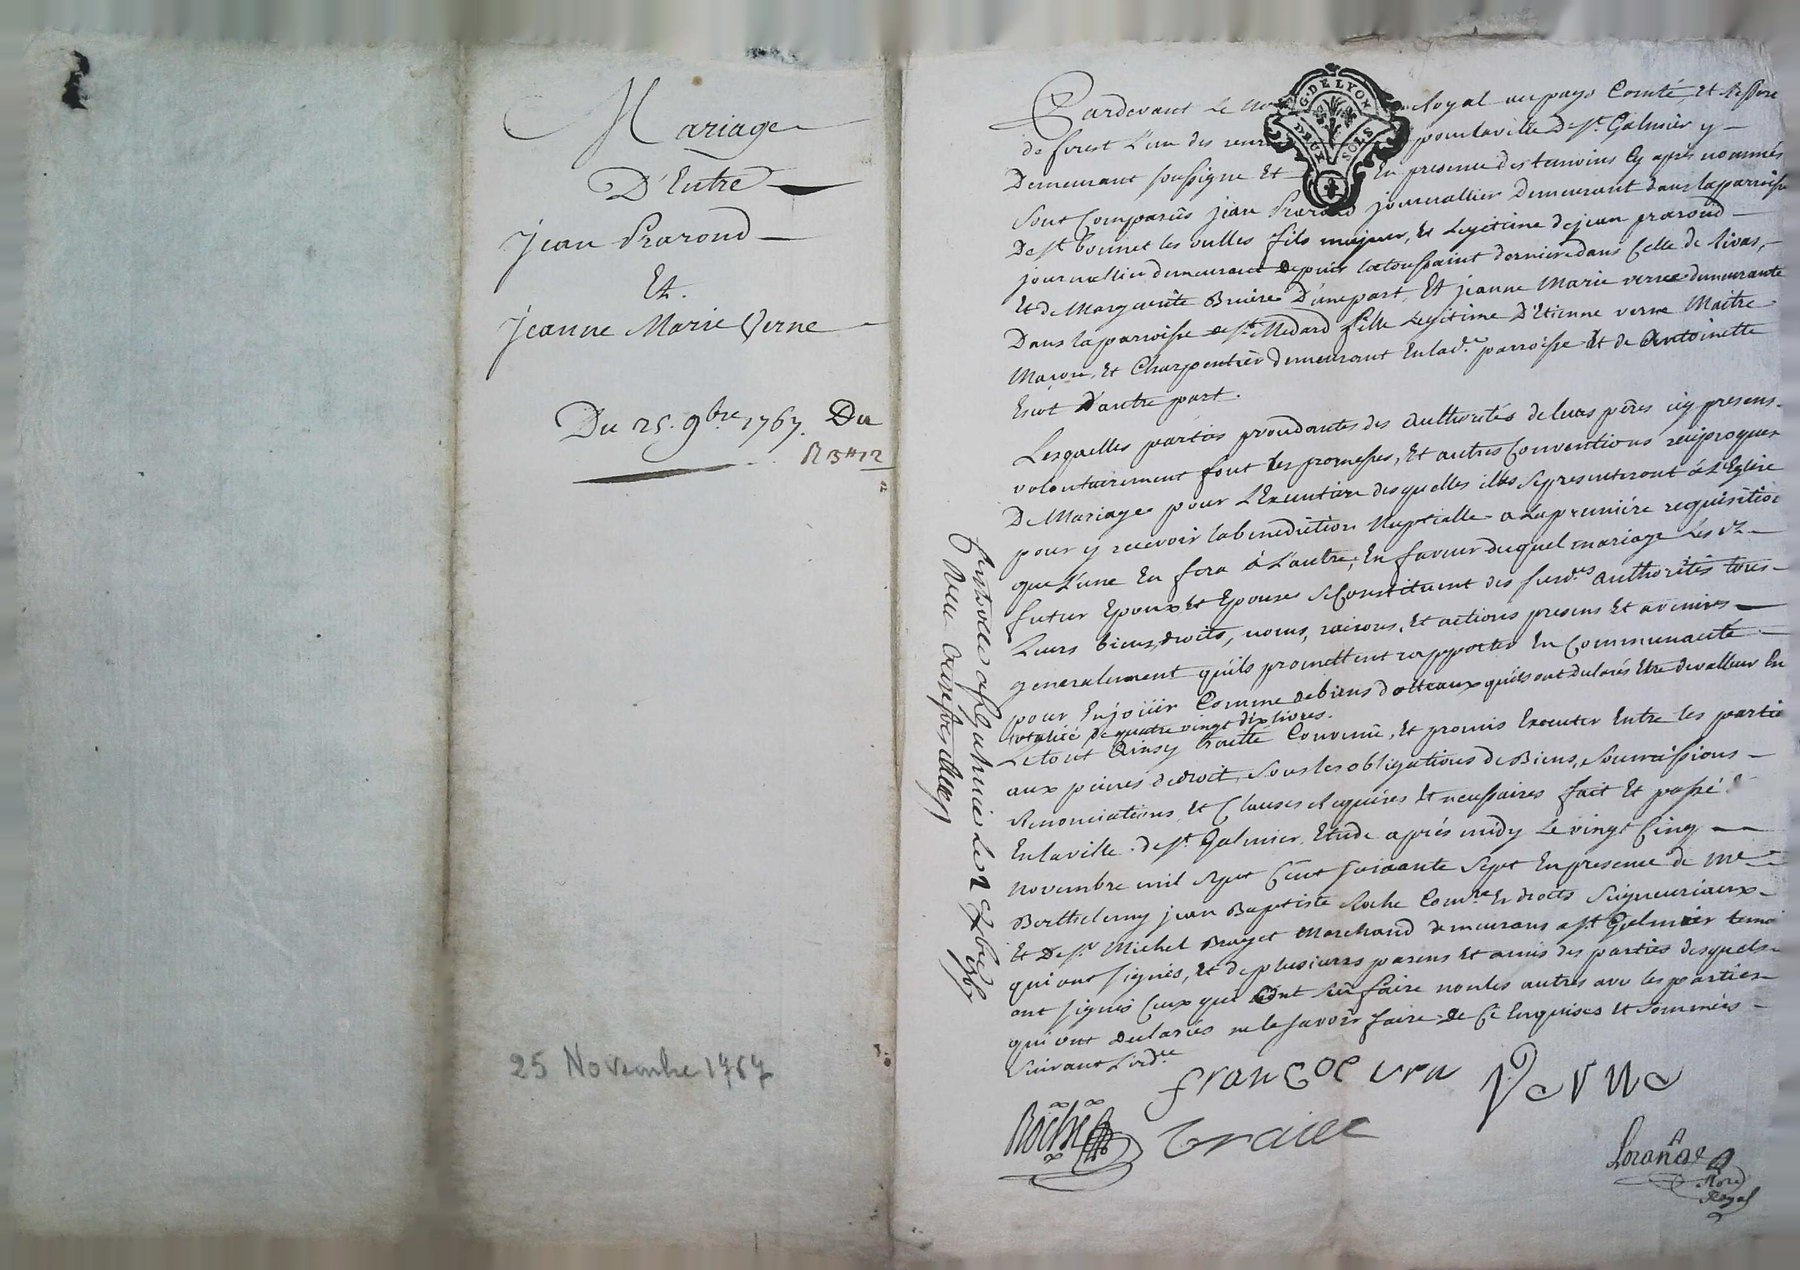 Mariage
D'Entre
Jean Prarond
Et.
Jeanne Marie Verne
Du 25. 9bre 1767. Du
25 Novembre 1767
G. DE LYON
DEUX SOLS
Pardevant Le No Royal au pays Comté, et Ressort
de forest L'un des pour la ville De St. Galmier y
Demeurant soussigné Et En presence des temoins Cy après nommés
Sont Comparûs jean Prarond journallier Demeurant dans la parroisse
De St bonnet les oulles fils majeur, et Legitime de jean prarond
journallier demeurant depuis la toussaint derniere dans Celle de Rivas,
Et de Marguerite Bruiere D'une part, Et jeanne Marie verne demeurante
Dans la parroisse de St. Medard fille Legitime D'Etienne verne Maitre
Maçon, et Charpentier demeurant En lad.e parroisse Et de Antoinette
Escot D'autre part.
Lesquelles parties procedantes des authorités de leurs pères icy presens
volontairement font les promesses, Et autres Conventions reciproques
De Mariage pour L'Execution desquelles illes se presenteront à L'Eglise
pour y recevoir la benediction Nuptialle a La premiére requisition
que L'une En fera à L'autre; En faveur duquel mariage Les d.
futur Epoux et Epouse se Constituent des susd.es authorités tous
Leurs biens, droits, noms, raisons, Et actions presens Et avenirs
generalement qu'ils promettent rapporter En Communauté
pour En jouir Comme de biens dotteaux qu'ils ont declarés Etre de valleur En
totalité de quatre vingt dix livres.
Le tout Ainsy traitté Convenu, Et promis Executer Entre les parties
aux peines de droit, Sous les obligations de Biens, Soumissions
Renonciations, et Clauses Requises Et necessaires fait Et passé
En la ville de St. Galmier, Etude après midy Le vingt Cinq
Novembre mil Sept Cent Soixante Sept En presence de Me
Berthelemy jean Baptiste Roche Com.re En droits Seigneuriaux
Et De Sr. Michel Brayet Marchand demeurans a St. Galmier temoins
qui ont signés, Et de plusieurs parens Et amis des parties desquels
ont signés Ceux qui ont sçu faire non les autres avec les parties
qui ont declarés ne le savoir faire de Ce Enquises et Sommées
Suivant L'ord.ce
verne
Roche